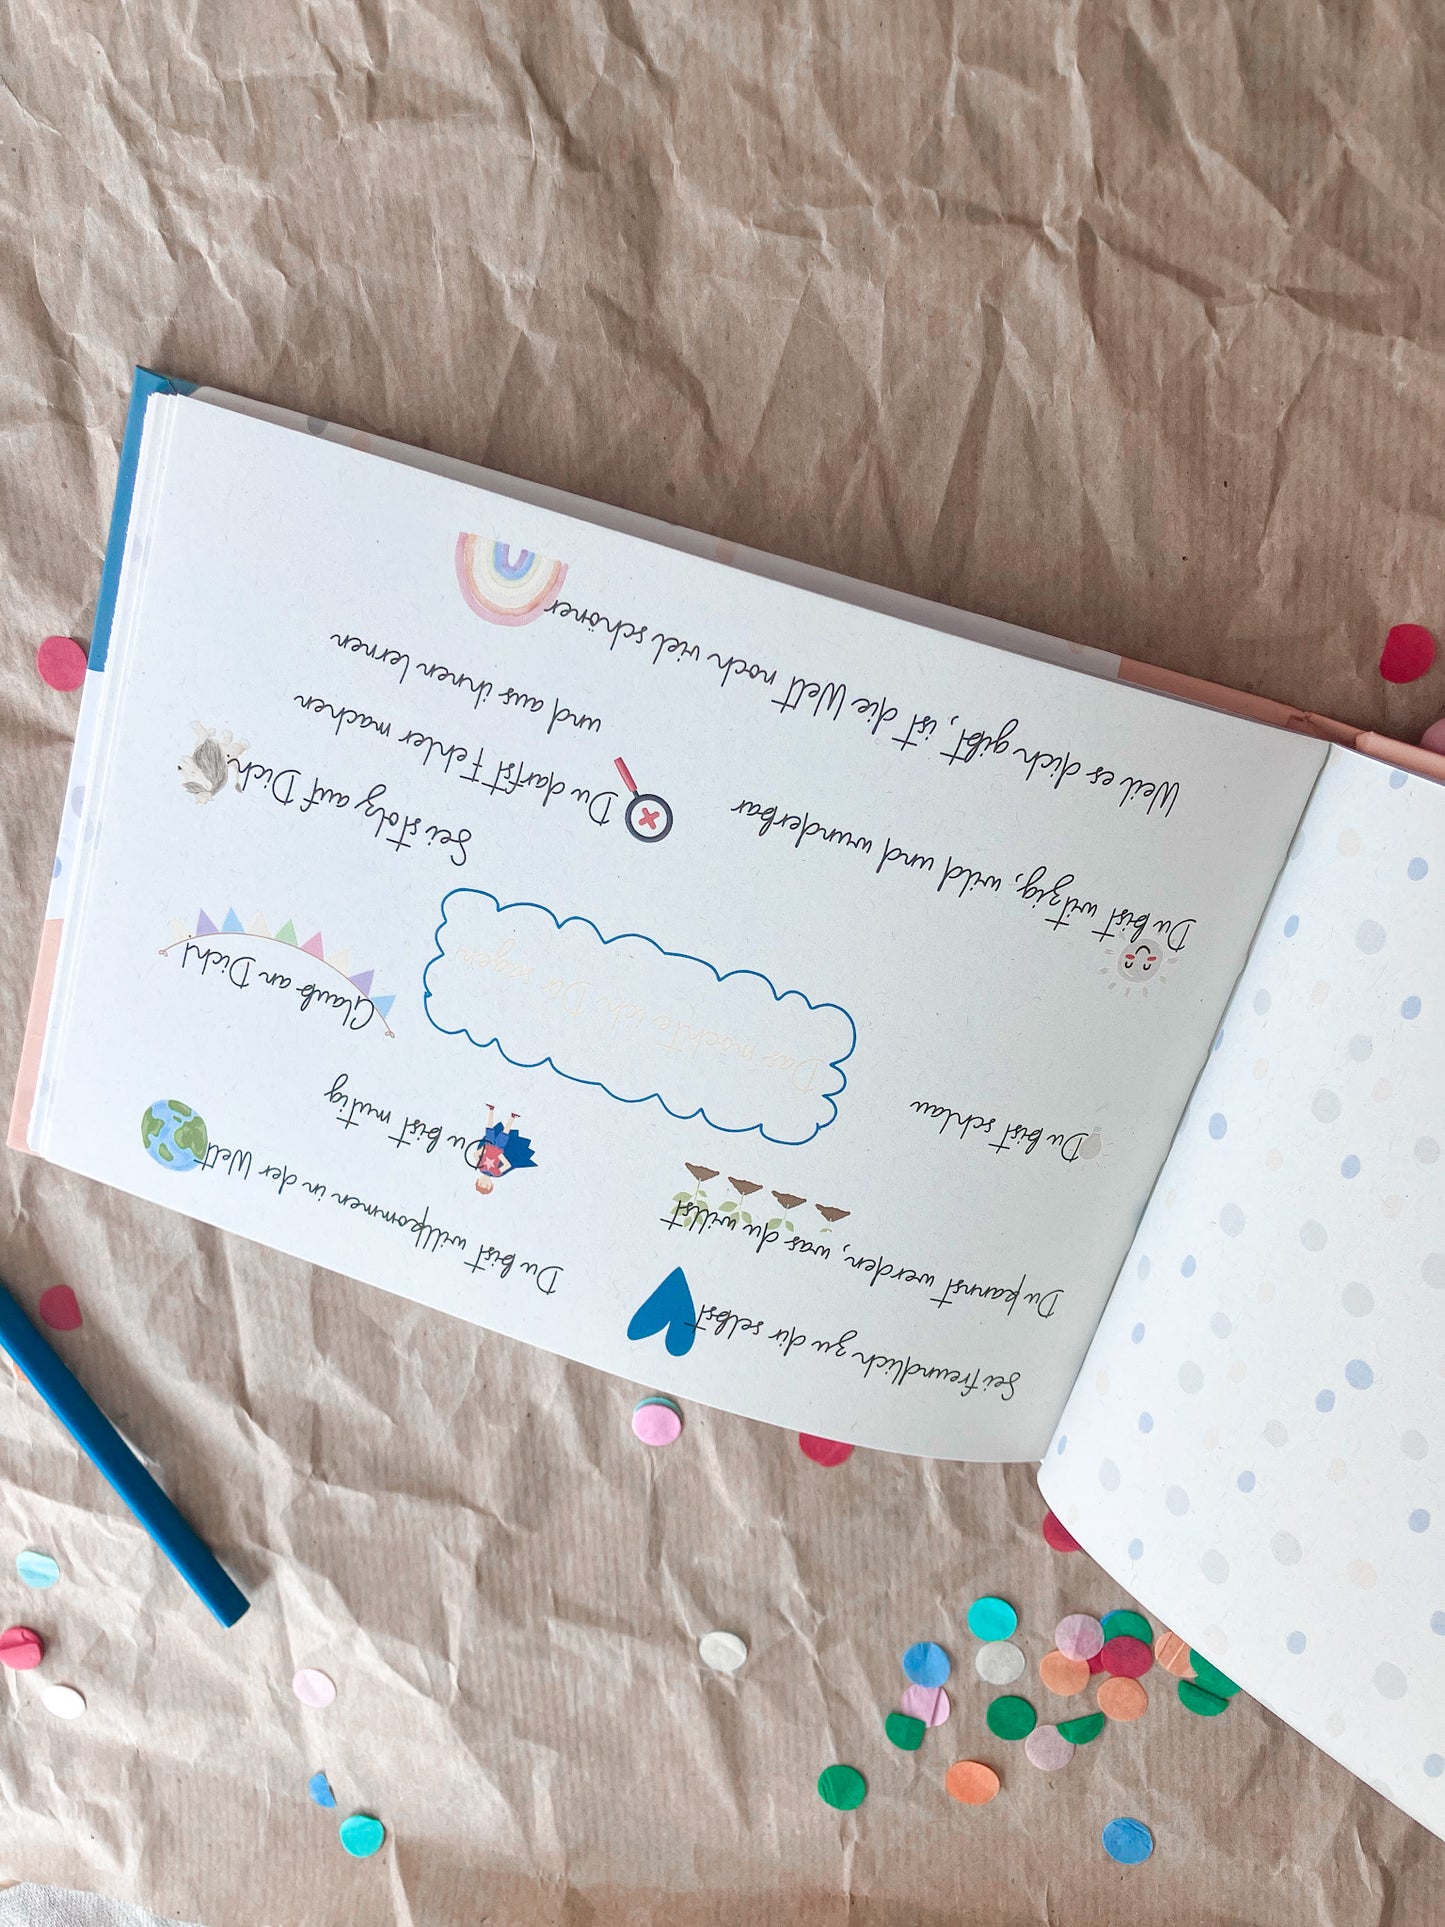 Sei freundlich zu dir selbst
Du bist willkommen in der Welt
Du kannst werden, was du willst
Du bist mutig
Du bist schlau
Das möchte ich Dir sagen!
Glaub an Dich!
Du bist witzig, wild und wunderbar
Sei stolz auf Dich
Du darfst Fehler machen
und aus ihnen lernen
Weil es dich gibt, ist die Welt noch viel schöner